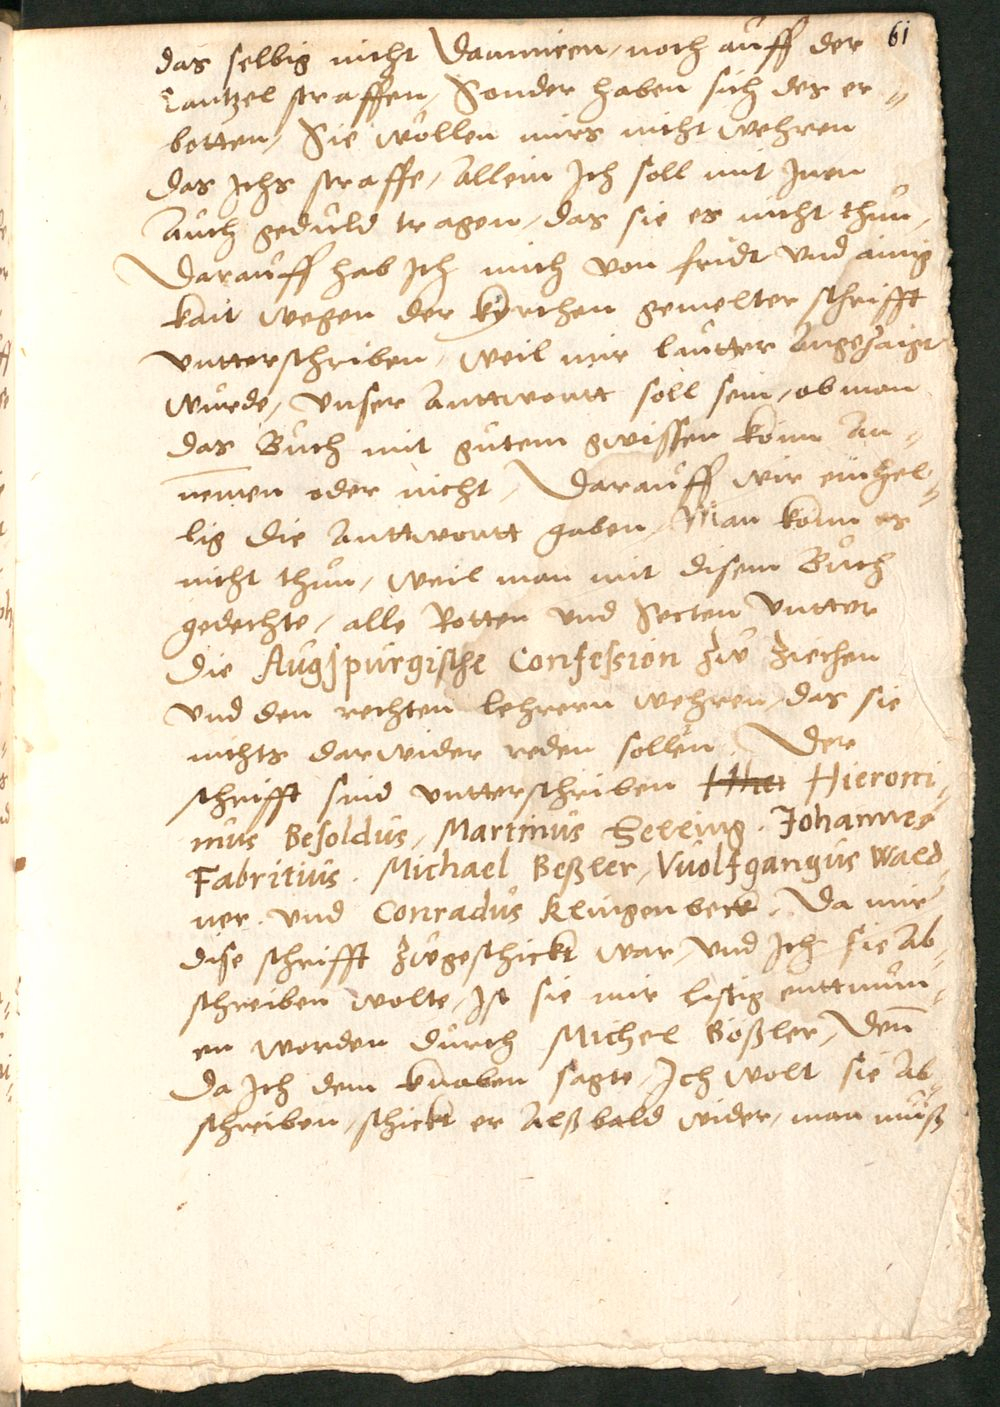 61
das selbig nicht Damniren, noch auff der
Cantzel straffen, Sonder haben sich des er=
botten, Sie wöllen mirs nicht wehren
das Ichs straffe, Allein Ich soll mit Inen
Auch geduld tragen, das sie es nicht thun,
Darauff hab Ich mich von fridt vnd ainig
kait wegen der kyrchen gemelter schrifft
vntterschriben, weil mir lautter Angezaigt
wurde, vnser Anttwortt soll sein, ob man
das Buch mit gutem gwissen könn An=
nemen oder nicht, Darauff wir einhel=
lig die Anttwortt gaben, Man könn es
nicht thun, weil man mit disem Buch
gedechte, alle Rotten vnd Secten vntter
die Augspurgische Confession zu ziehen
vnd den rechten lehrern wehren, das sie
nichts darwider reden sollen. Der
schrifft sind vntterschriben Hieroni,
mus Besoldus, Martinus Heling. Johannes
Fabritius. Michael Beßler, Vuolfgangus Wald
ner. vnd Conradus Klingenbeck. Da mir
dise schrifft zugeschickt war, vnd Ich sie Ab=
schreiben wolte, Ist sie mir listig enttnum=
en worden durch Michel Bößler, Denn
da Ich dem knaben sagte, Ich wolt sie Ab=
schreiben, schickt er Alßbald wider, man muß